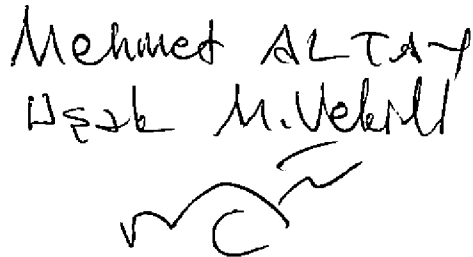 Mehmet ALTAY
Uşak M.Vekili